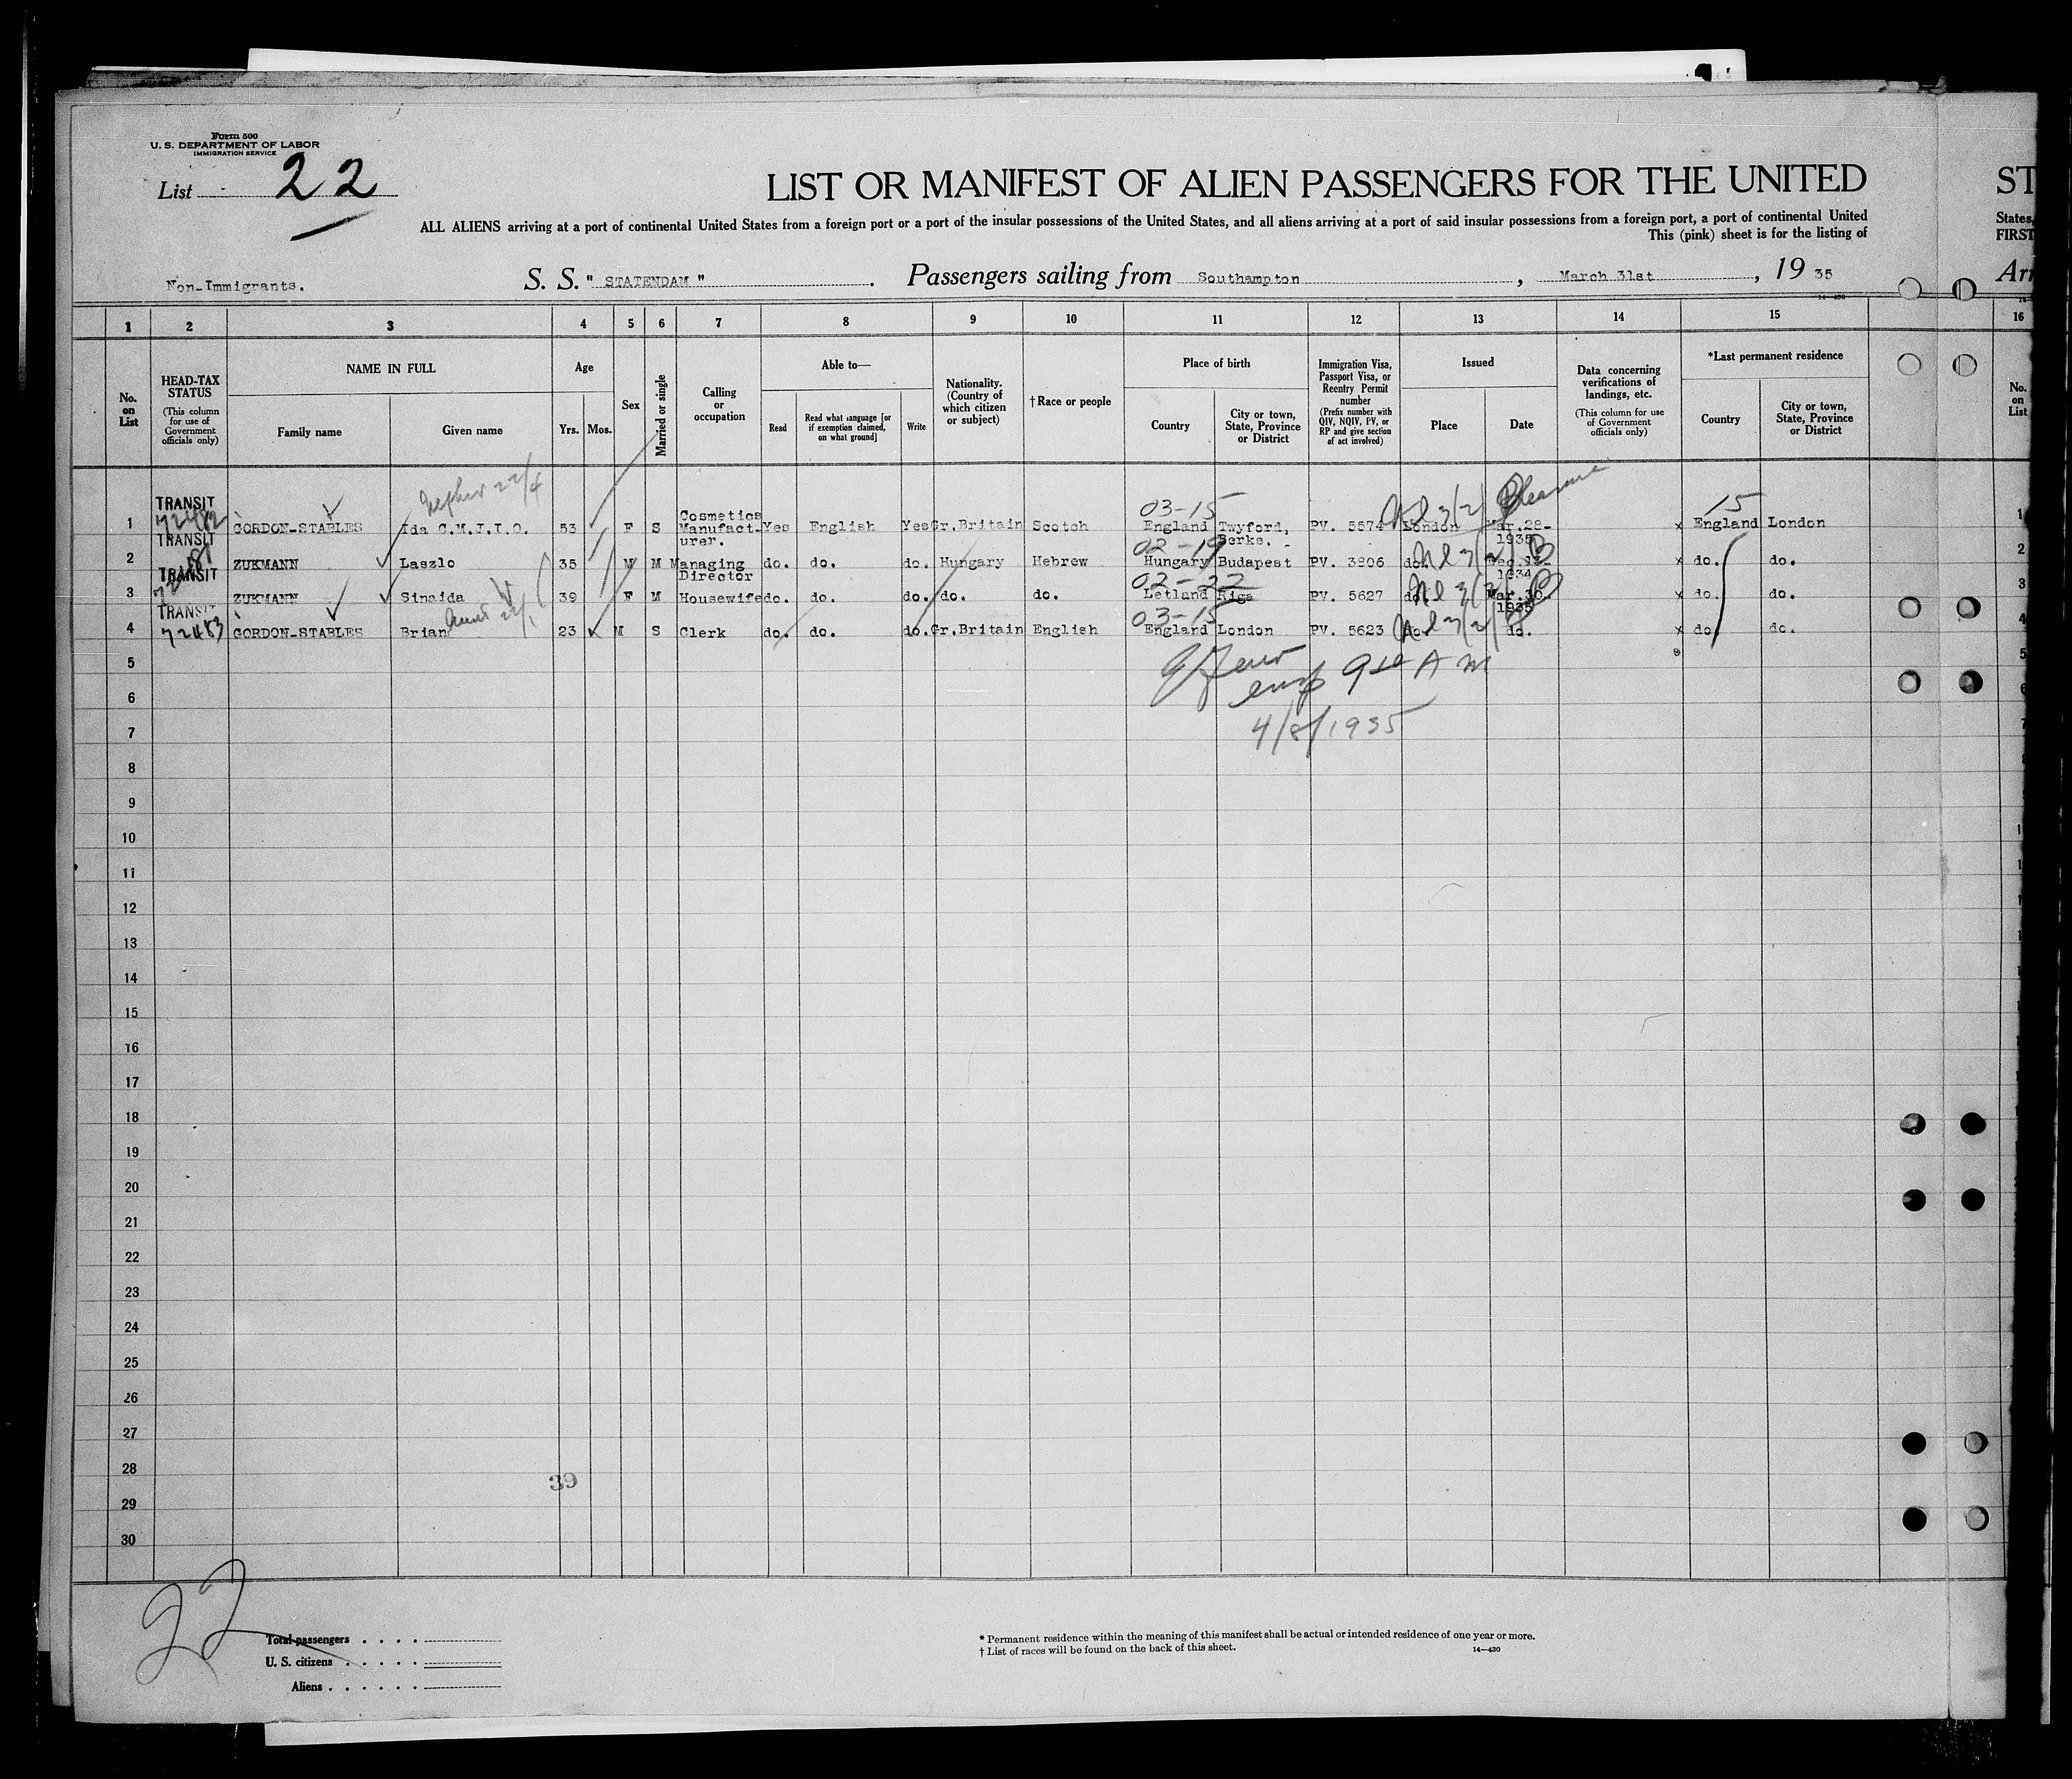 Form 500
U. S. DEPARTMENT OF LABOR
IMMIGRATION SERVICE
List 22
LIST OR MANIFEST OF ALIEN PASSENGERS FOR THE UNITED
ST
ALL ALIENS arriving at a port of continental United States from a foreign port or a port of the insular possessions of the United States, and all aliens arriving at a port of said insular possessions from a foreign port, a port of continental United
States,
This (pink) sheet is for the listing of
FIRST
Non-Immigrants. S. S. " STATENDAM ". Passengers sailing from Southampton, March 31st, 19 35
Arr
1 2 3 4 5 6 7 8 9 10 11 12 13 14 15 16
No. on List
HEAD-TAX STATUS
(This column for use of Government officials only)
NAME IN FULL
Family name Given name
Age
Yrs. Mos.
Sex
Married or single
Calling or occupation
Able to—
Read
Read what language [or if exemption claimed, on what ground]
Write
Nationality. (Country of which citizen or subject)
†Race or people
Place of birth
Country
City or town, State, Province or District
Immigration Visa, Passport Visa, or Reentry Permit number
(Prefix number with QIV, NQIV, PV, or RP and give section of act involved)
Issued
Place Date
Data concerning verifications of landings, etc.
(This column for use of Government officials only)
*Last permanent residence
Country
City or town, State, Province or District
No. on List
Nephew 22/4
03-15
15
1 TRANSIT 72482 GORDON-STABLES Ida C.M.J.I.O. 53 F S Cosmetics Manufacturer. Yes English Yes Gr.Britain Scotch England Twyford, Berks. PV. 5574 London Mar.28-1935 x England London
02-19
2 TRANSIT ZUKMANN Laszlo 35 M M Managing Director do. do. do. Hungary Hebrew Hungary Budapest PV. 3806 do. Dec. 1934 x do. do.
02-22
3 TRANSIT ZUKMANN Sinaida 39 F M Housewife do. do. do. do. do. Letland Riga PV. 5627 do. Mar.30-1935 x do. do.
Aunt 22/1
03-15
4 TRANSIT 72483 GORDON-STABLES Brian 23 M S Clerk do. do. do. Gr.Britain English England London PV. 5623 do. do. x do. do.
5
6
9 AM
7
4/8/1935
8
9
10
11
12
13
14
15
16
17
18
19
20
21
22
23
24
25
26
27
28
39
29
30
22
Total passengers
U. S. citizens
Aliens
* Permanent residence within the meaning of this manifest shall be actual or intended residence of one year or more.
† List of races will be found on the back of this sheet.
14—430